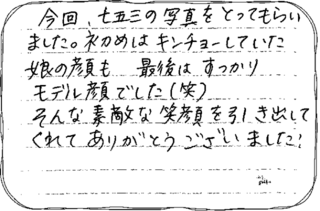 今回、七五三の写真をとってもらい
ました。初めはキンチョーしていた
娘の顔も 最後はすっかり
モデル顔でした(笑)
そんな素敵な笑顔を引き出して
くれてありがとうございました!